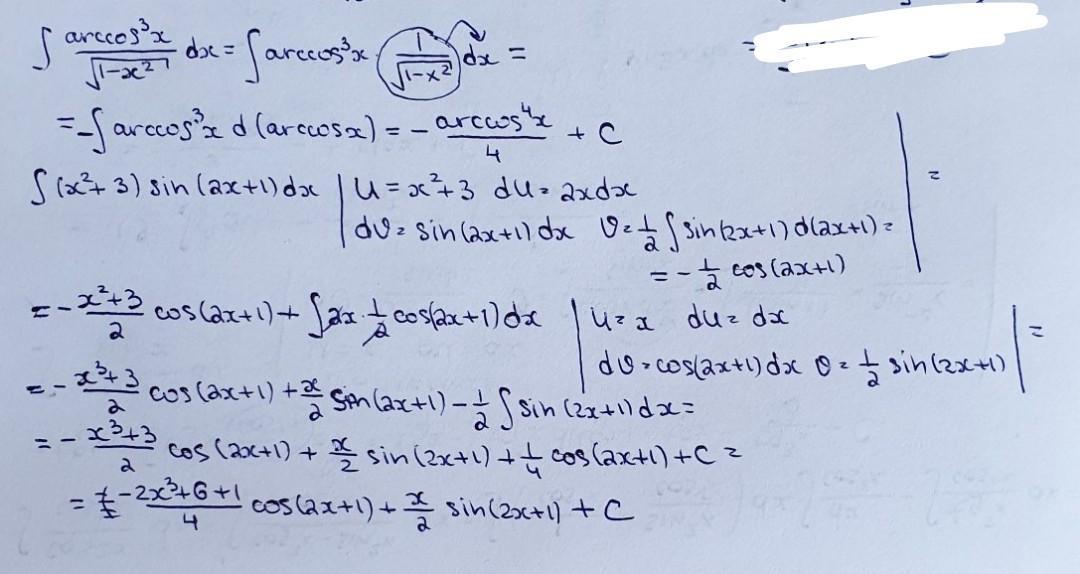 ∫ arccos³x / √(1-x²) dx = ∫ arccos³x · (1 / √(1-x²)) dx =
= -∫ arccos³x d(arccosx) = - arccos⁴x / 4 + C
∫ (x²+3) sin(2x+1) dx | u = x²+3 du = 2xdx
dv = sin(2x+1) dx v = 1/2 ∫ sin(2x+1) d(2x+1) =
= - 1/2 cos(2x+1) | =
= - (x²+3)/2 cos(2x+1) + ∫ 2x · 1/2 cos(2x+1) dx | u = x du = dx
dv = cos(2x+1) dx v = 1/2 sin(2x+1) | =
= - (x³+3)/2 cos(2x+1) + x/2 sin(2x+1) - 1/2 ∫ sin(2x+1) dx =
= - (x³+3)/2 cos(2x+1) + x/2 sin(2x+1) + 1/4 cos(2x+1) + C =
= (-2x³+6+1)/4 cos(2x+1) + x/2 sin(2x+1) + C